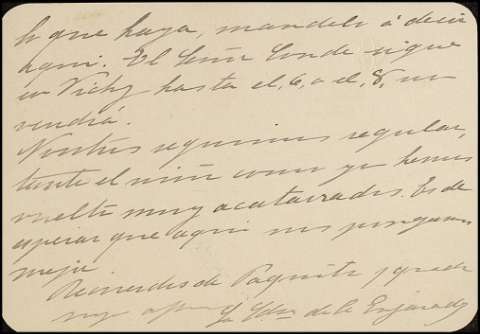 lo que haya, mandelo á decir
aqui. El Señor Conde sigue
en Vichy hasta el, 6, o el, 8, no
vendrá.
Nosotros seguimos regular,
tante el niño como yo hemos
vuelto muy acatarrados. Es de
esperar que aqui nos pongamos
mejor
Recuerdos de Paquita y quede
suyo